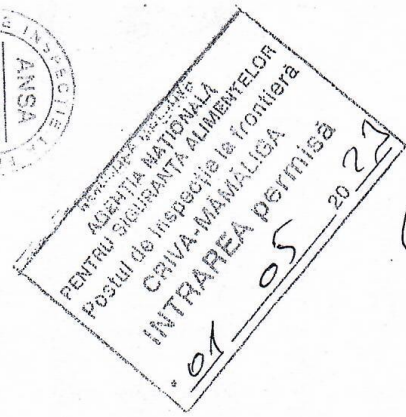 INSPECȚIE LA
ANSA
REPUBLICA MOLDOVA
AGENȚIA NAȚIONALĂ
PENTRU SIGURANȚA ALIMENTELOR
Postul de inspecție la frontieră
CRIVA-MAMALIGA
INTRAREA permisă
01 05 2021